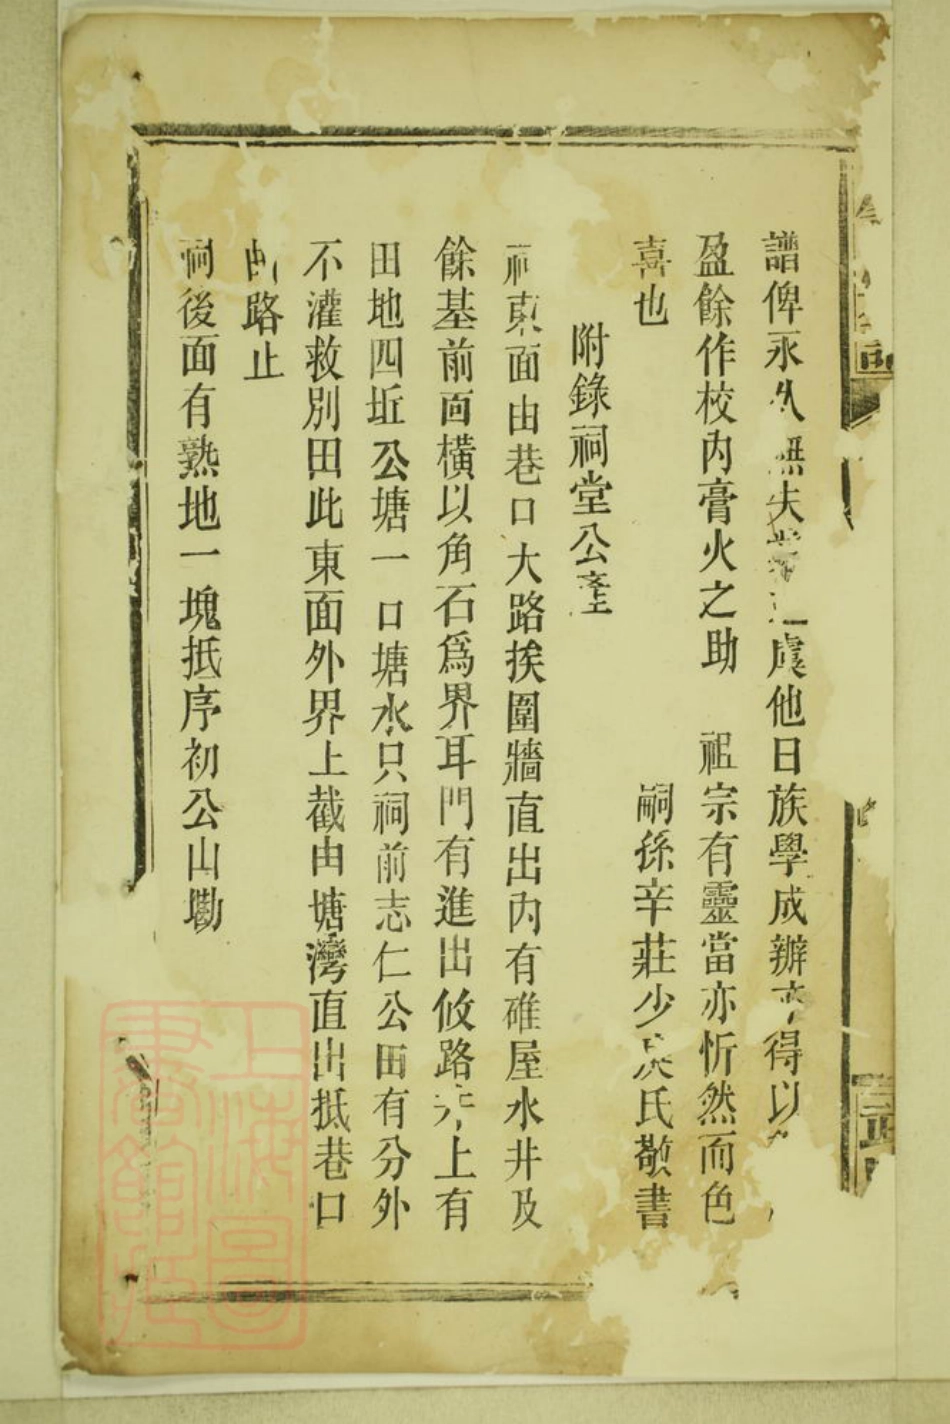 譜俾永久無失虞他日族學成辦亦得以
盈餘作校內膏火之助 祖宗有靈當亦忻然而色
喜也 嗣孫辛莊少炎氏敬書
附錄祠堂公產
祠東面由巷口大路挨圍牆直出內有碓屋水井及
餘基前面橫以角石為界耳門有進出攸路上有
田地四坵公塘一口塘水只祠前志仁公田有分外
不灌救別田此東面外界上截由塘灣直出抵巷口
路止
祠後面有熟地一塊抵序初公山墈
上海圖
書館藏